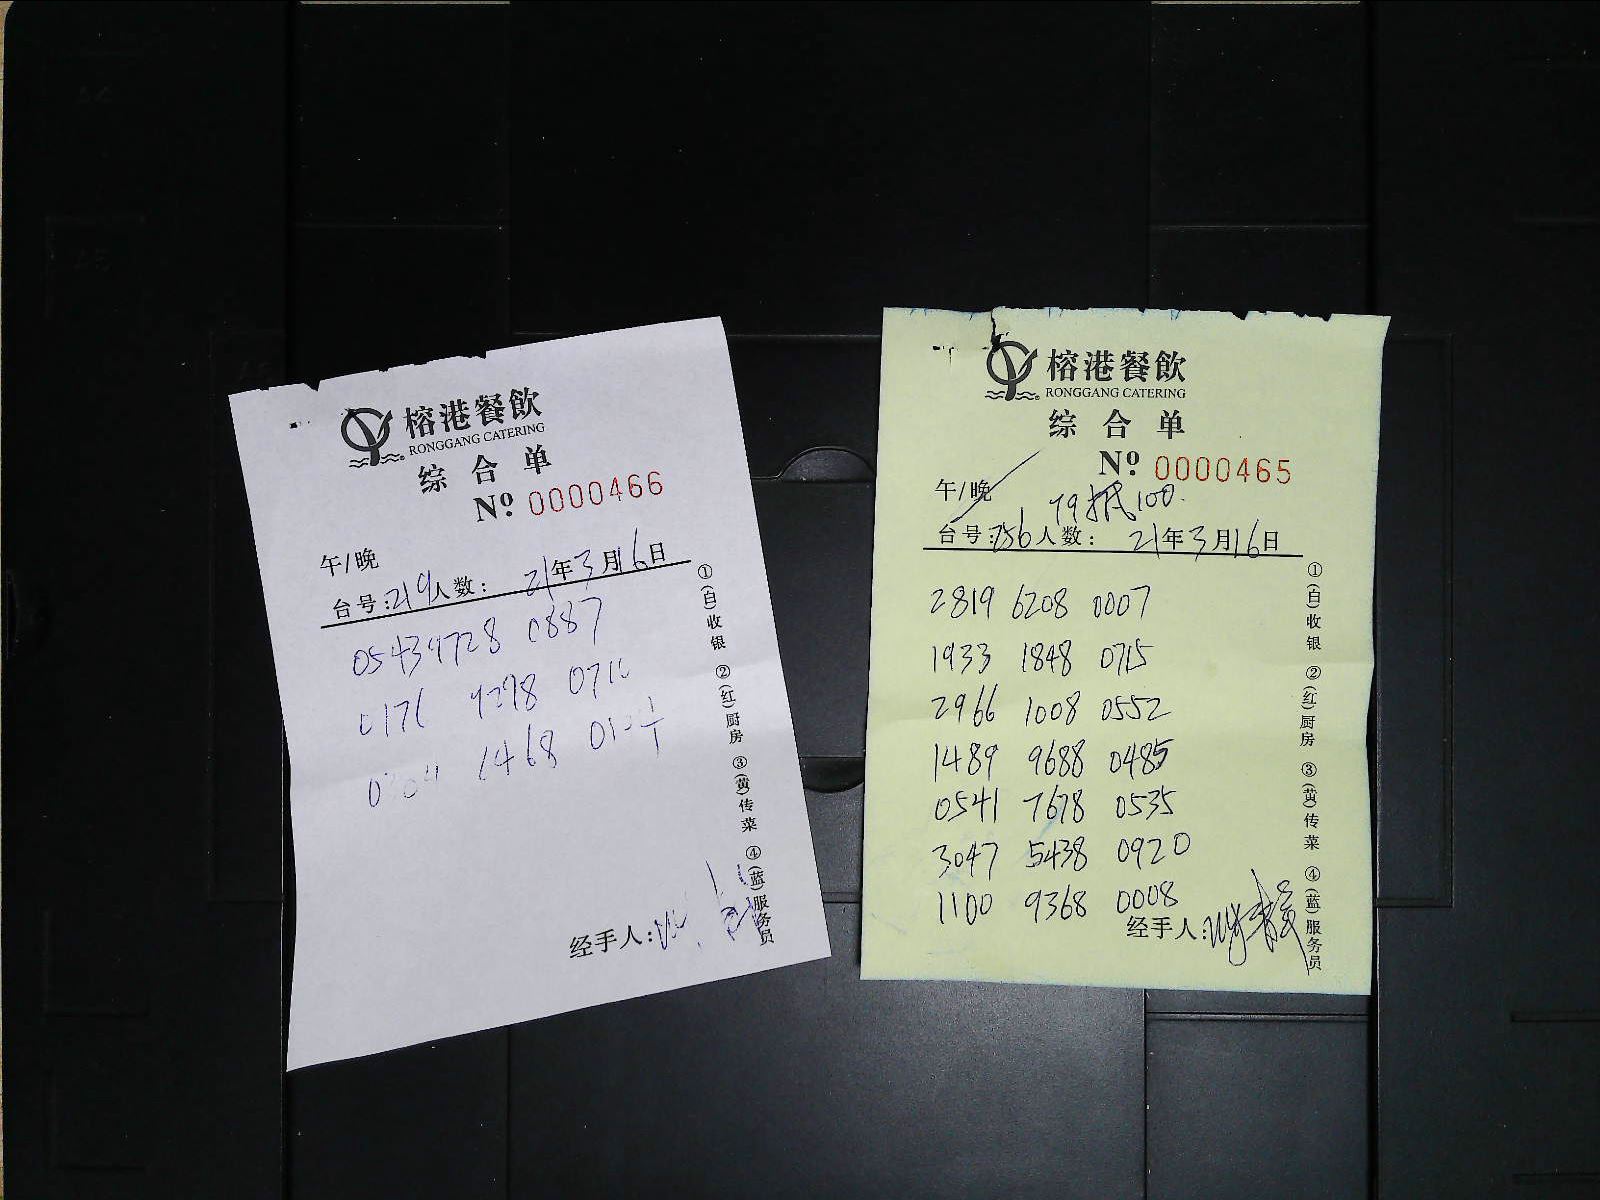 榕港餐飲
RONGGANG CATERING
综合单
Nº 0000466
午/晚
台号:219人数: 21年3月16日
0543 9728 0887
0176 9298
1468
经手人:
①(白)收银 ②(红)厨房 ③(黄)传菜 ④(蓝)服务员
榕港餐飲
RONGGANG CATERING
综合单
Nº 0000465
午/晚
79抵100.
台号:256人数: 21年3月16日
2819 6208 0007
1933 1848 0715
2966 1008 0552
1489 9688 0485
0541 7678 0535
3047 5438 0920
1100 9368 0008
经手人:
①(白)收银 ②(红)厨房 ③(黄)传菜 ④(蓝)服务员